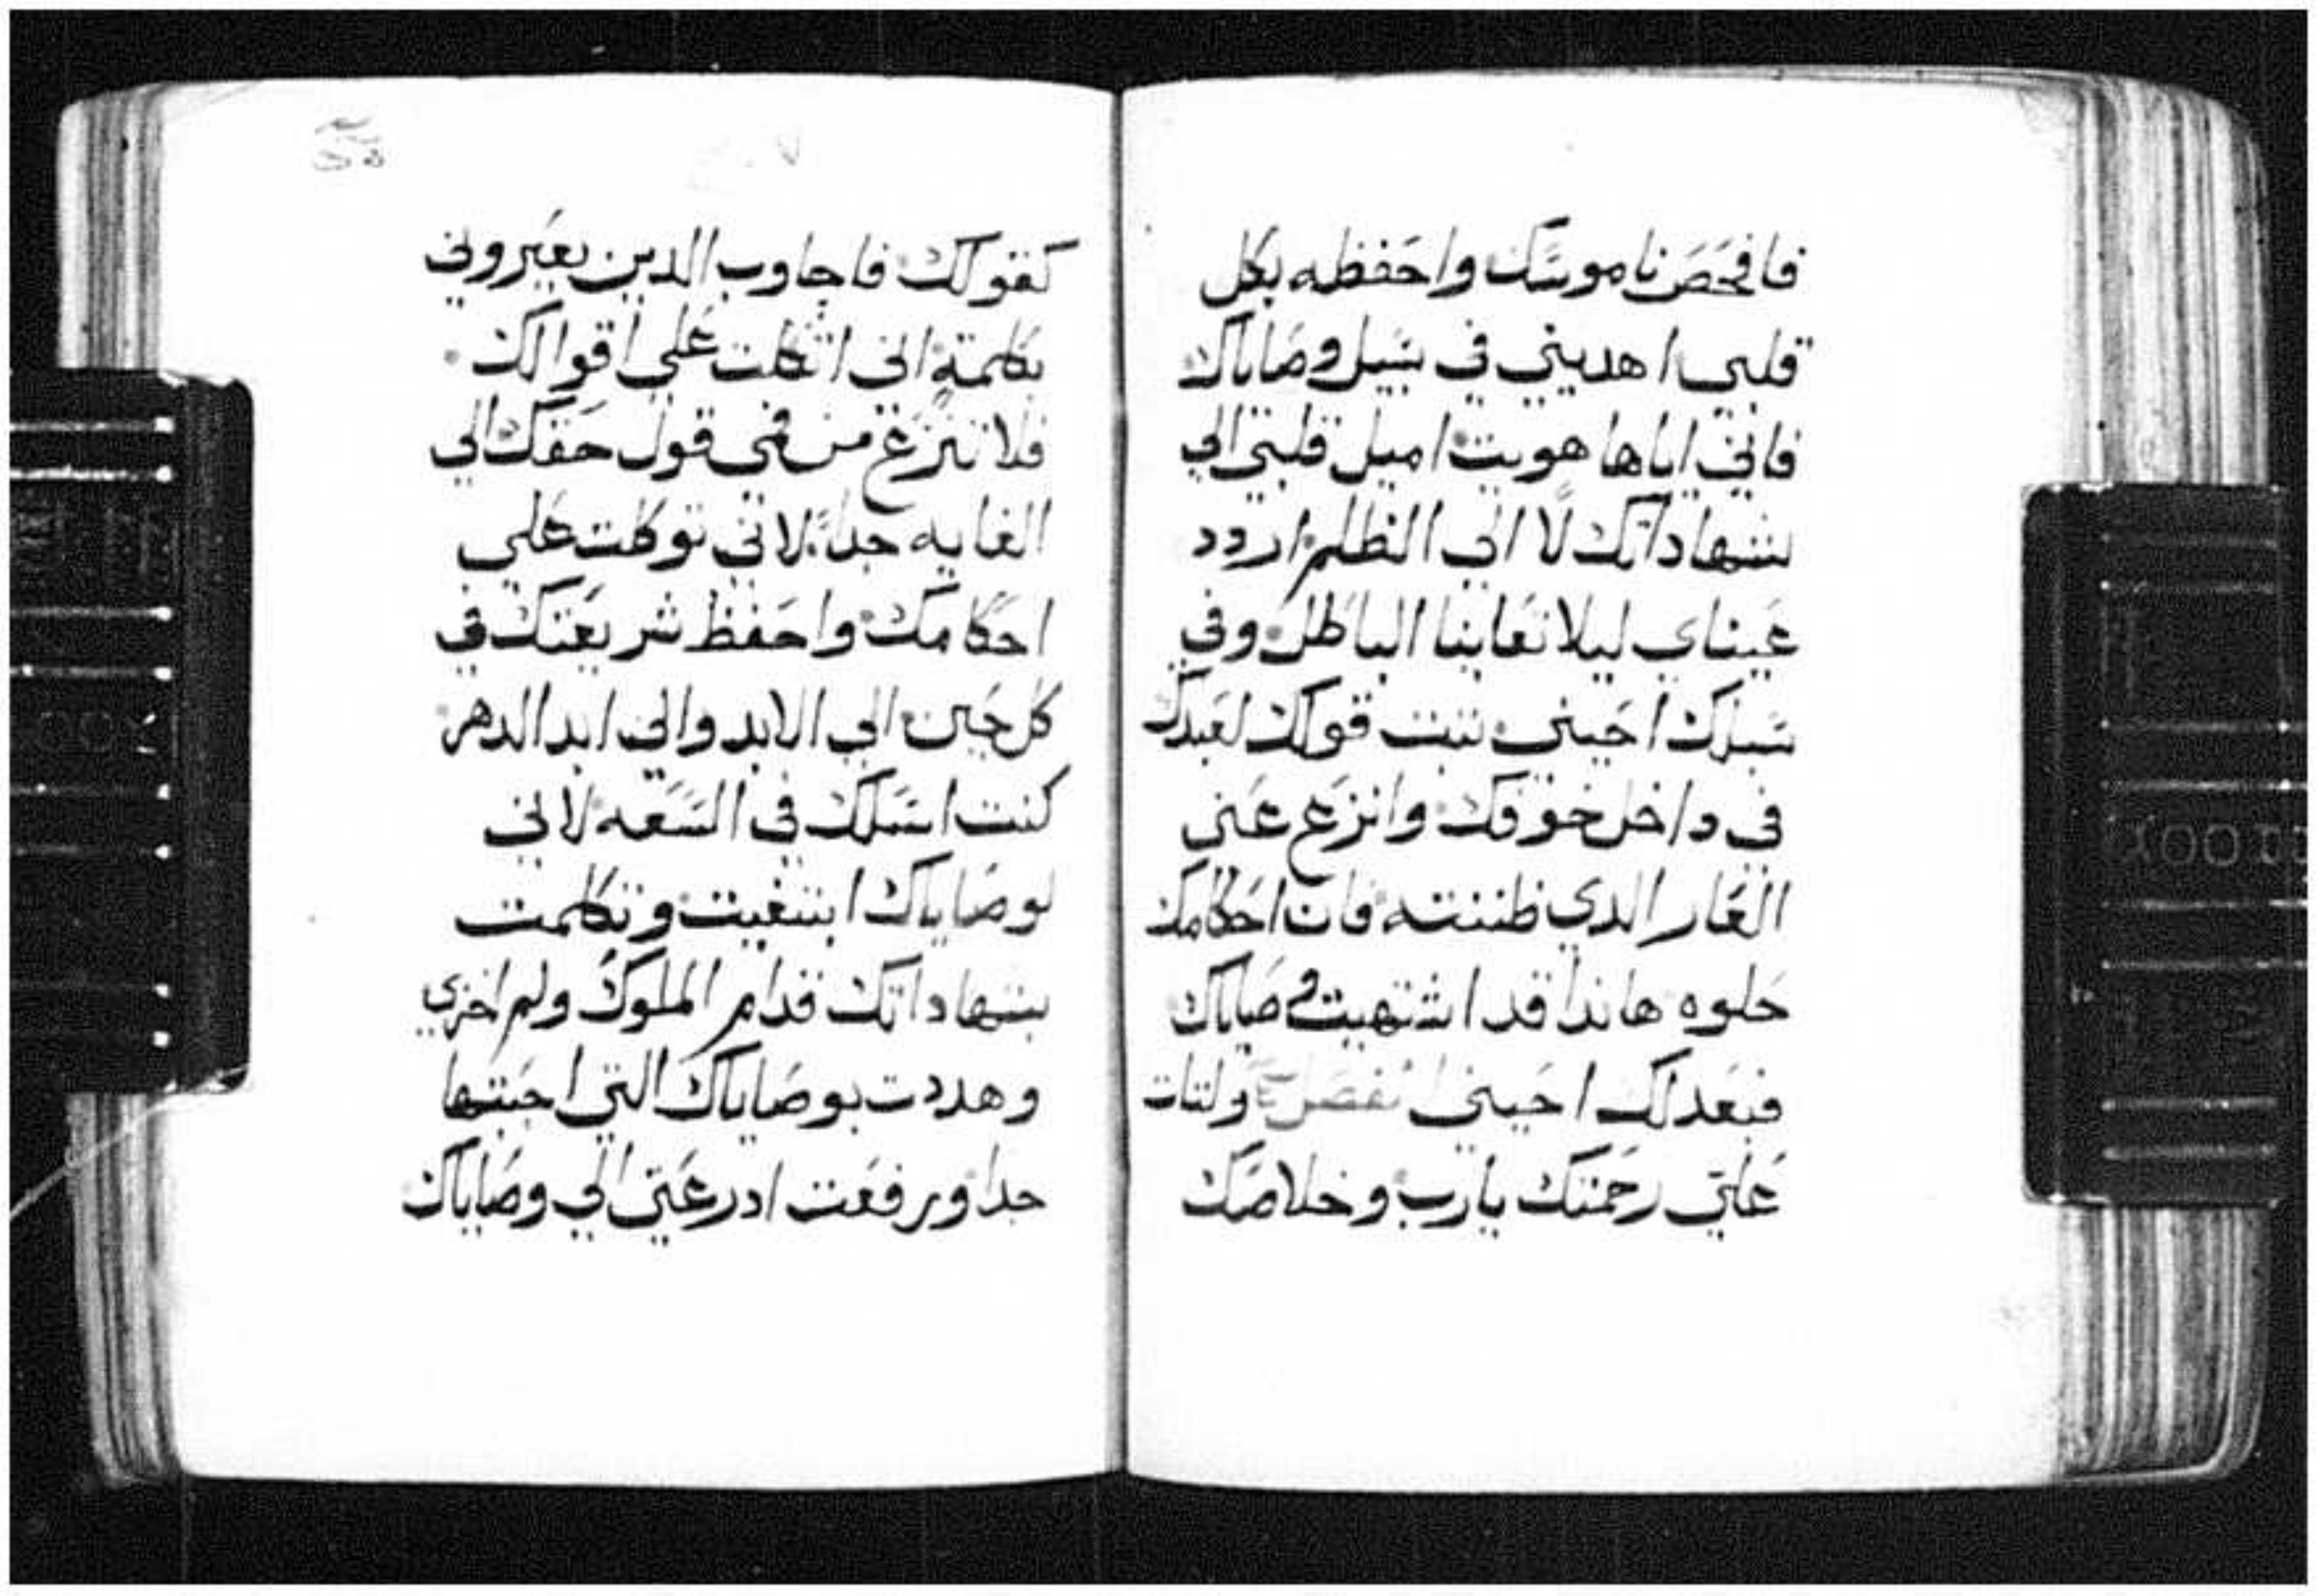 فافحص ناموسك واحفظه بكل
قلبي اهديني في سبيل وصاياك
فاني اياها هويت اميل قلبي الي
شهاداتك لا الي الظلم اردد
عيناي ليلا تعاينا الباطل وفي
سبلك احيني تبت قولك لعبدك
في داخل خوفك وانزع عني
العار الدي ظننته فان احكامك
حلوه هاندا قد اشتهيت وصاياك
فبعدلك احيني ولتات
علي رحمتك يارب وخلاصك
كقولك فاجاوب الدين يعيروني
بكلمة اني اتكلت علي اقوالك
فلا تنزع من فمي قول حقك الي
الغايه جدا لاني توكلت علي
احكامك واحفظ شريعتك في
كل حين الي الابد والي ابد الدهر
كنت اسلك في السعه لاني
لوصاياك ابتغيت وتكلمت
بشهاداتك قدام الملوك ولم اخزي
وهددت بوصاياك التي احبتها
جدا ورفعت ادرعتي الي وصاياك